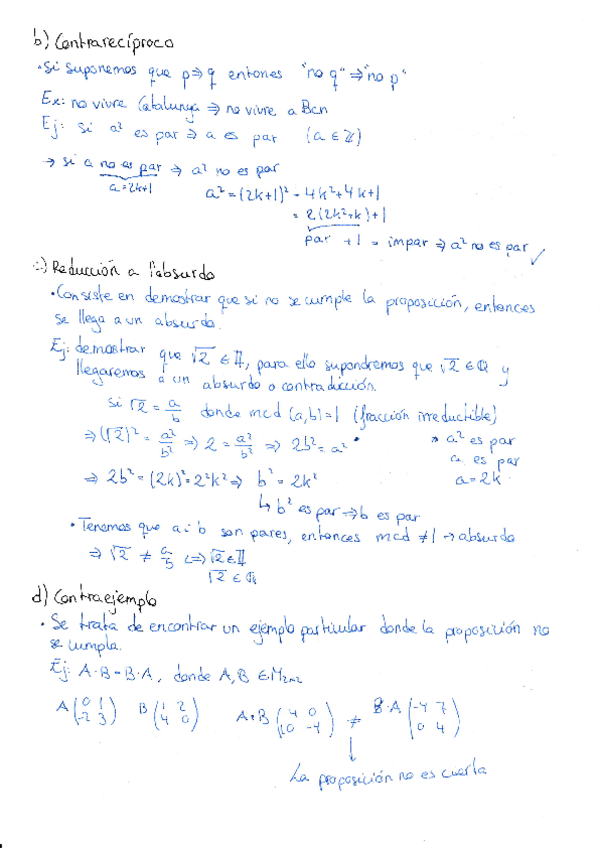 b) Contrarecíproco
· Si suponemos que p⇒q entonces "no q"⇒"no p"
Ex: no vivre Catalunya ⇒ no vivre a Bcn
Ej: si a² es par ⇒ a es par (a ∈ ℤ)
→ si a no es par ⇒ a² no es par
a=2k+1 a² = (2k+1)² = 4k²+4k+1
= 2(2k²+k)+1
par + 1 = impar ⇒ a² no es par ✓
c) Reducción a l'absurdo
· Consiste en demostrar que si no se cumple la proposición, entonces
se llega a un absurdo.
Ej: demostrar que √2 ∈ 𝕀, para ello supondremos que √2 ∈ ℚ y
llegaremos a un absurdo o contradicción.
si √2 = a/b donde mcd (a,b)=1 (fracción irreductible)
⇒ (√2)² = a²/b² ⇒ 2 = a²/b² ⇒ 2b² = a² * * a² es par
a es par
⇒ 2b² = (2k)² = 2²k² ⇒ b² = 2k² a=2k
↳ b² es par ⇒ b es par
· Tenemos que a i b son pares, entonces mcd ≠ 1 → absurdo
⇒ √2 ≠ a/b ⇔ √2 ∈ 𝕀
√2 ∈ ℚ
d) Contraejemplo
· Se trata de encontrar un ejemplo particular donde la proposición no
se cumpla.
Ej: A·B = B·A, donde A, B ∈ M2x2
A (0 1 / -2 3) B (1 2 / 4 0) A·B (4 0 / 10 -4) ≠ B·A (-4 7 / 0 4)
↓
La proposición no es cierta